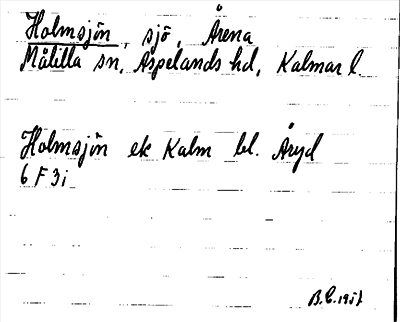 Holmsjön, sjö, Årena
Målilla sn, Aspelands hd, Kalmar l.
Holmsjön ek Kalm bl. Åryd
6 F 3i